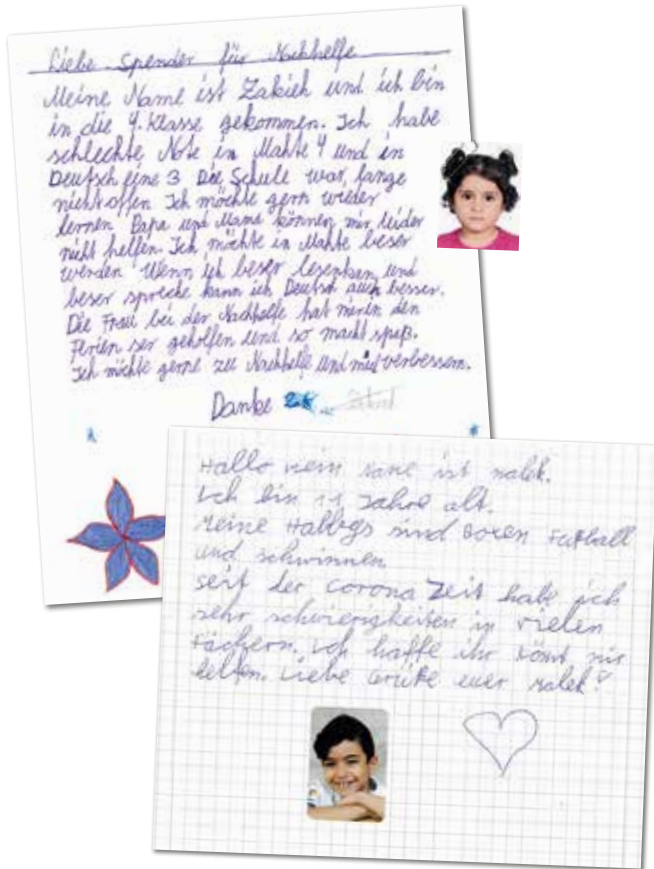 Liebe Spender für Nachhelfe
Meine Name ist Zakieh und ich bin
in die 4. Klasse gekommen. Ich habe
schlechte Note in Mahte 4 und in
Deutsch eine 3 Die Schule war lange
nicht offen Ich möchte gern wieder
lernen Papa und Mama können mir leider
nicht helfen. Ich möchte in Mahte beser
werden Wenn ich beser lesen kan und
beser spreche kann ich Deutsch auch besser.
Die Frau bei der Nachhelfe hat mir in den
Ferien ser geholfen und so macht spaß.
Ich möchte gerne zu Nachhelfe und verbessern.
Danke
Hallo mein name ist malek.
Ich bin 11 Jahre alt.
Meine Hallbys sind Boxen Fußball
und schwimmen
seit der corona Zeit habe ich
sehr schwierigkeiten in vielen
Fächern. Ich haffe ihr könnt mir
helfen. Liebe Grüße euer malek!